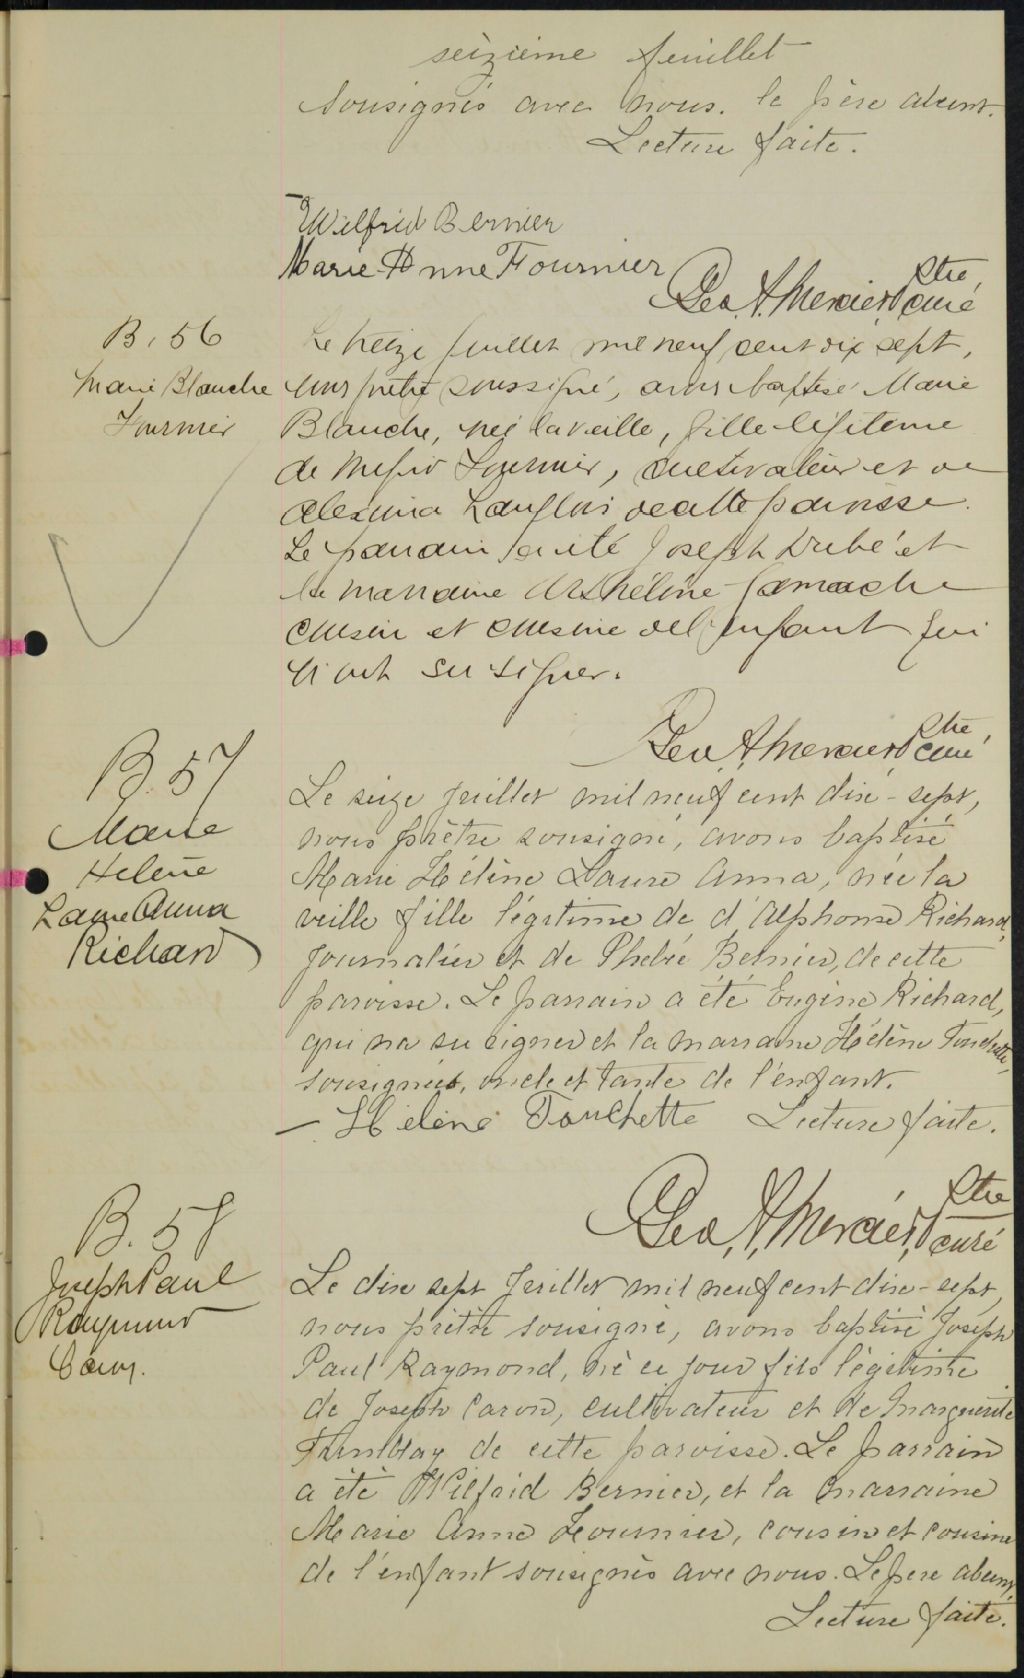 seizième feuillet
Sousignés avec nous. le père absent.
Lecture faite.
Wilfrid Bernier
Marie-Anne Fournier
Geo. A. Mercier Ptre curé
B. 56
Marie Blanche
Fournier
Le treize juillet mil neuf cent dix sept,
nous prêtre soussigné, avons baptisé Marie
Blanche, née la veille, fille légitime
de Fournier, cultivateur et de
Alexina Langlois de cette paroisse.
Le parrain a été Joseph Dubé et
la marraine Gamache
cousin et cousine de l'enfant qui
n'ont su signer.
Geo. A. Mercier Ptre curé
B. 57
Marie
Helène
Laure Anna
Richard
Le seize juillet mil neuf cent dix-sept,
nous prêtre sousigné, avons baptisé
Marie Hélène Laure Anna, née la
veille fille légitime de d'Alphonse Richard,
journalier et de Phebée Bernier, de cette
paroisse. Le parrain a été Eugène Richard,
qui na su signer et la marraine Hélène Touchette,
sousignés, oncle et tante de l'enfant.
— Hélène Touchette Lecture faite.
Geo. A. Mercier, Ptre curé
B. 58
Joseph Paul
Raymond
Caron.
Le dix sept Juillet mil neuf cent dix-sept,
nous prêtre sousigné, avons baptisé Joseph
Paul Raymond, né ce jour fils légitime
de Joseph Caron, cultivateur et de Marguerite
Tremblay de cette paroisse. Le parrain
a été Wilfrid Bernier, et la marraine
Marie Anne Fournier, cousin et cousine
de l'enfant sousignés avec nous. Le père absent,
Lecture faite.